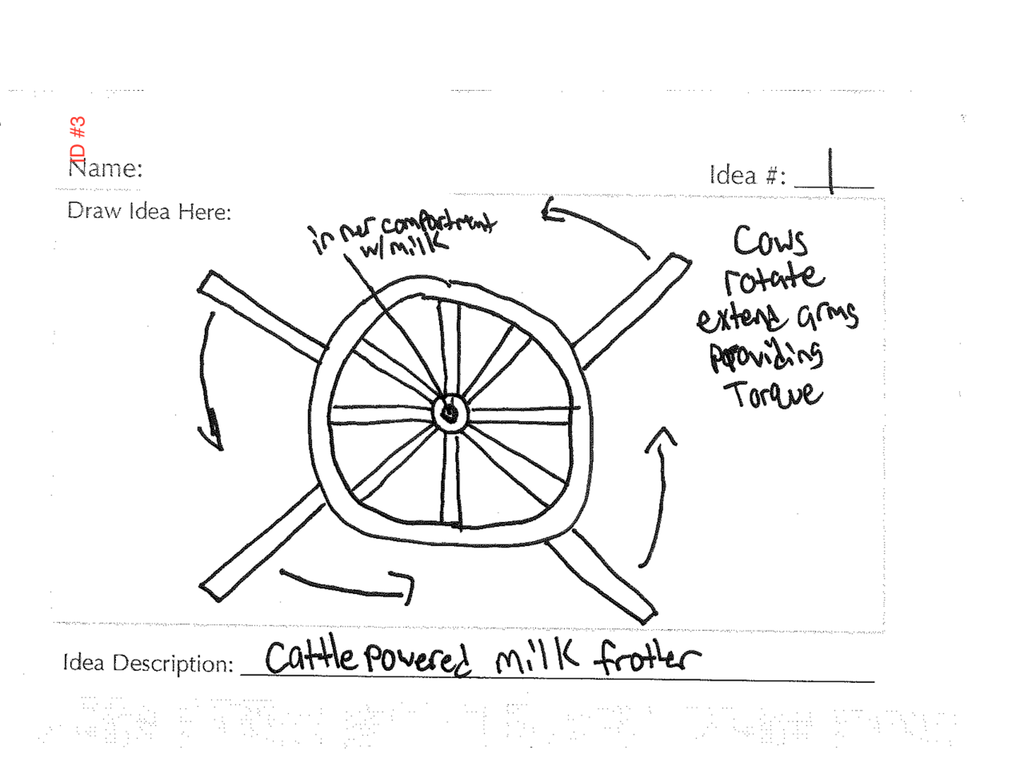 ID #3
Name:
Idea #: 1
Draw Idea Here:
inner compartment
w/milk
Cows
rotate
extend arms
providing
Torque
Idea Description: Cattle powered milk frother